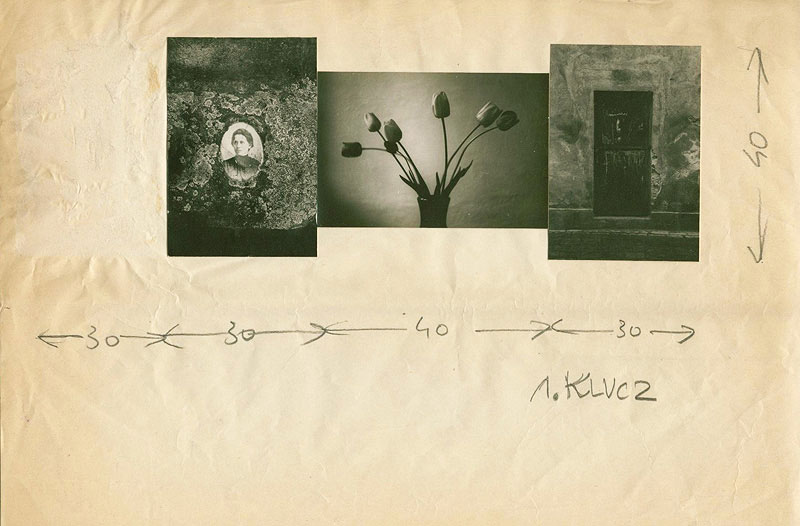 40
30 30 40 30
1. KLUCZ